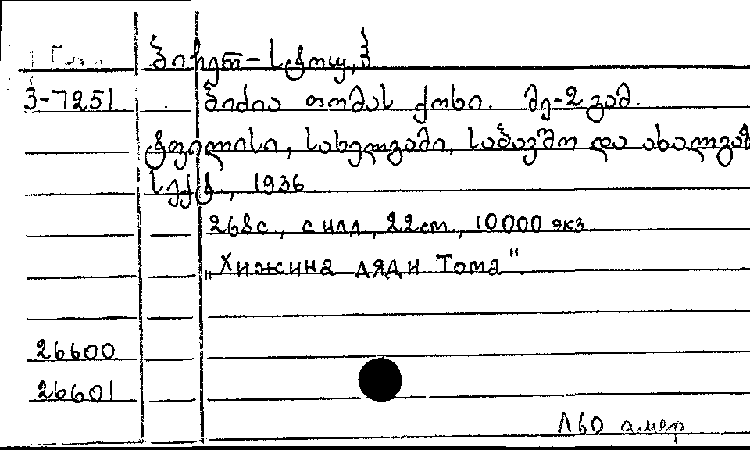 ბიჩერ-სტოუ, ჰ
3-7251 ბიძია თომას ქოხი. მე-2 გამ.
ტფილისი, სახელგამი, საბავშო და ახალგაზ
სექტ., 1936
268с., с илл, 22см, 10000 экз
„Хижина дяди Тома".
26600
26601
Л60 амер